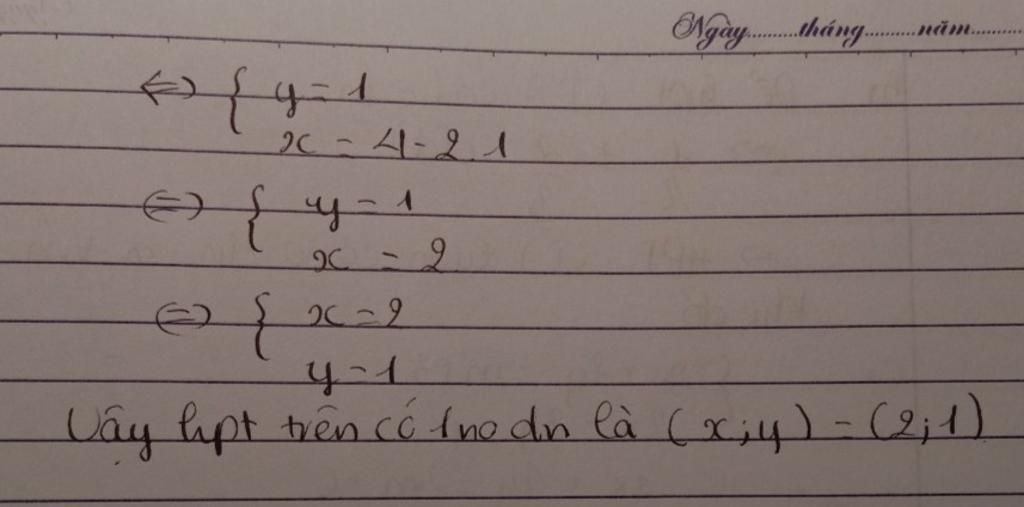 Ngày..........tháng..........năm..........
⇔ { y = 1
x = 4 - 2.1
⇔ { y = 1
x = 2
⇔ { x = 2
y = 1
Vậy hpt trên có 1 no dn là (x;y) = (2;1)